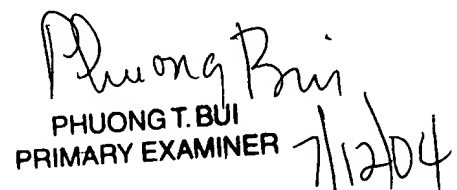 Phuong Bui
PHUONG T. BUI
PRIMARY EXAMINER 7/12/04